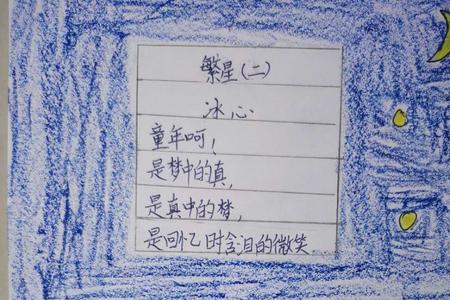 繁星(二)
冰心
童年呵!
是梦中的真,
是真中的梦,
是回忆时含泪的微笑